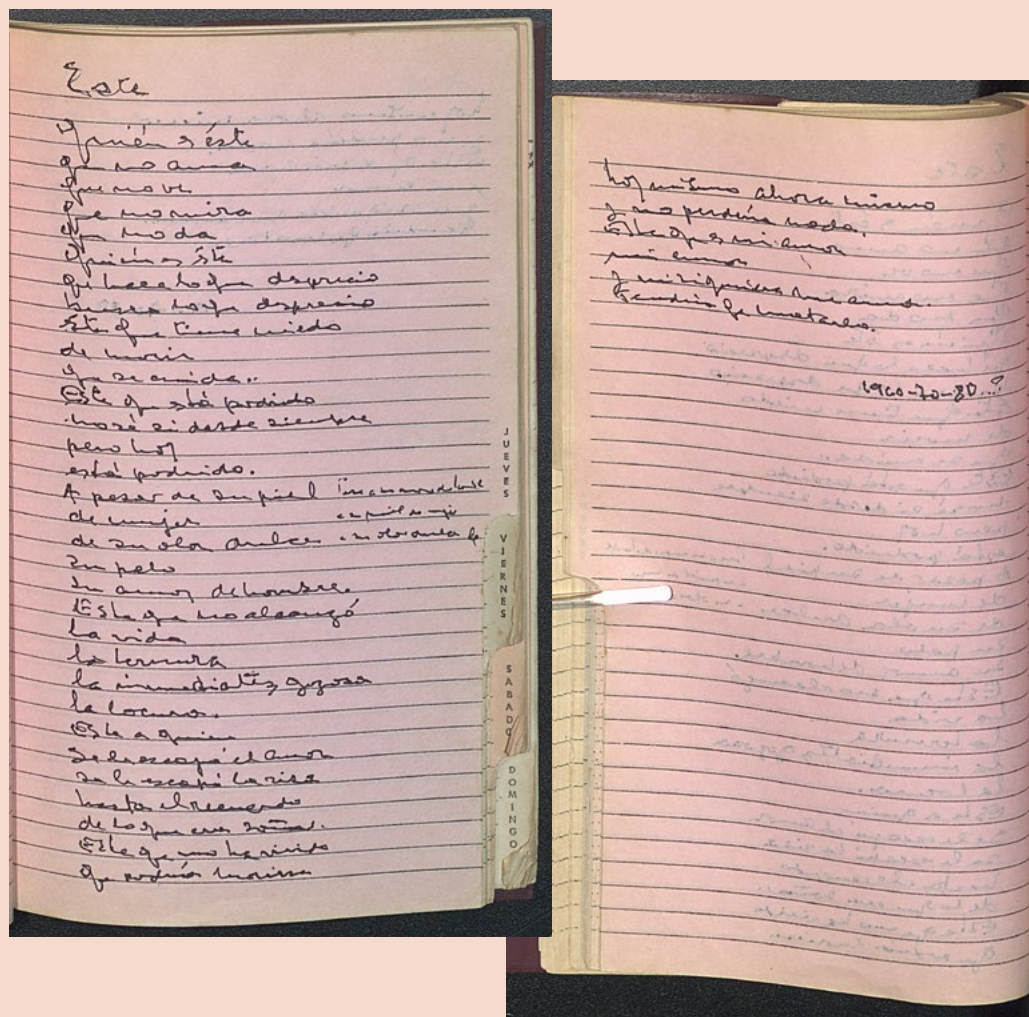 Este
Quién es éste
que no ama
que no ve
que no mira
que no da
Quién es éste
que hace lo que desprecio
busca lo que desprecio
Este que tiene miedo
de morir
que se anida..
Este que está podrido
no sé si desde siempre
pero hoy
está podrido.
A pesar de su piel
de mujer
de su olor dulce
su pelo
su amor de hombre.
Este que no alcanzó
la vida
la ternura
la inmediatez gozosa
la locura.
Este a quien
se le escapó el amor
se le escapó la risa
hasta el recuerdo
de lo que era soñar.
Este que no ha vivido
Que podría morirse
hoy mismo ahora mismo
y no perdería nada.
Este que es mi amor
mi amor
y ni siquiera me ama.
Tendría que matarlo.
1960-70-80..?
JUEVES
VIERNES
SABADO
DOMINGO